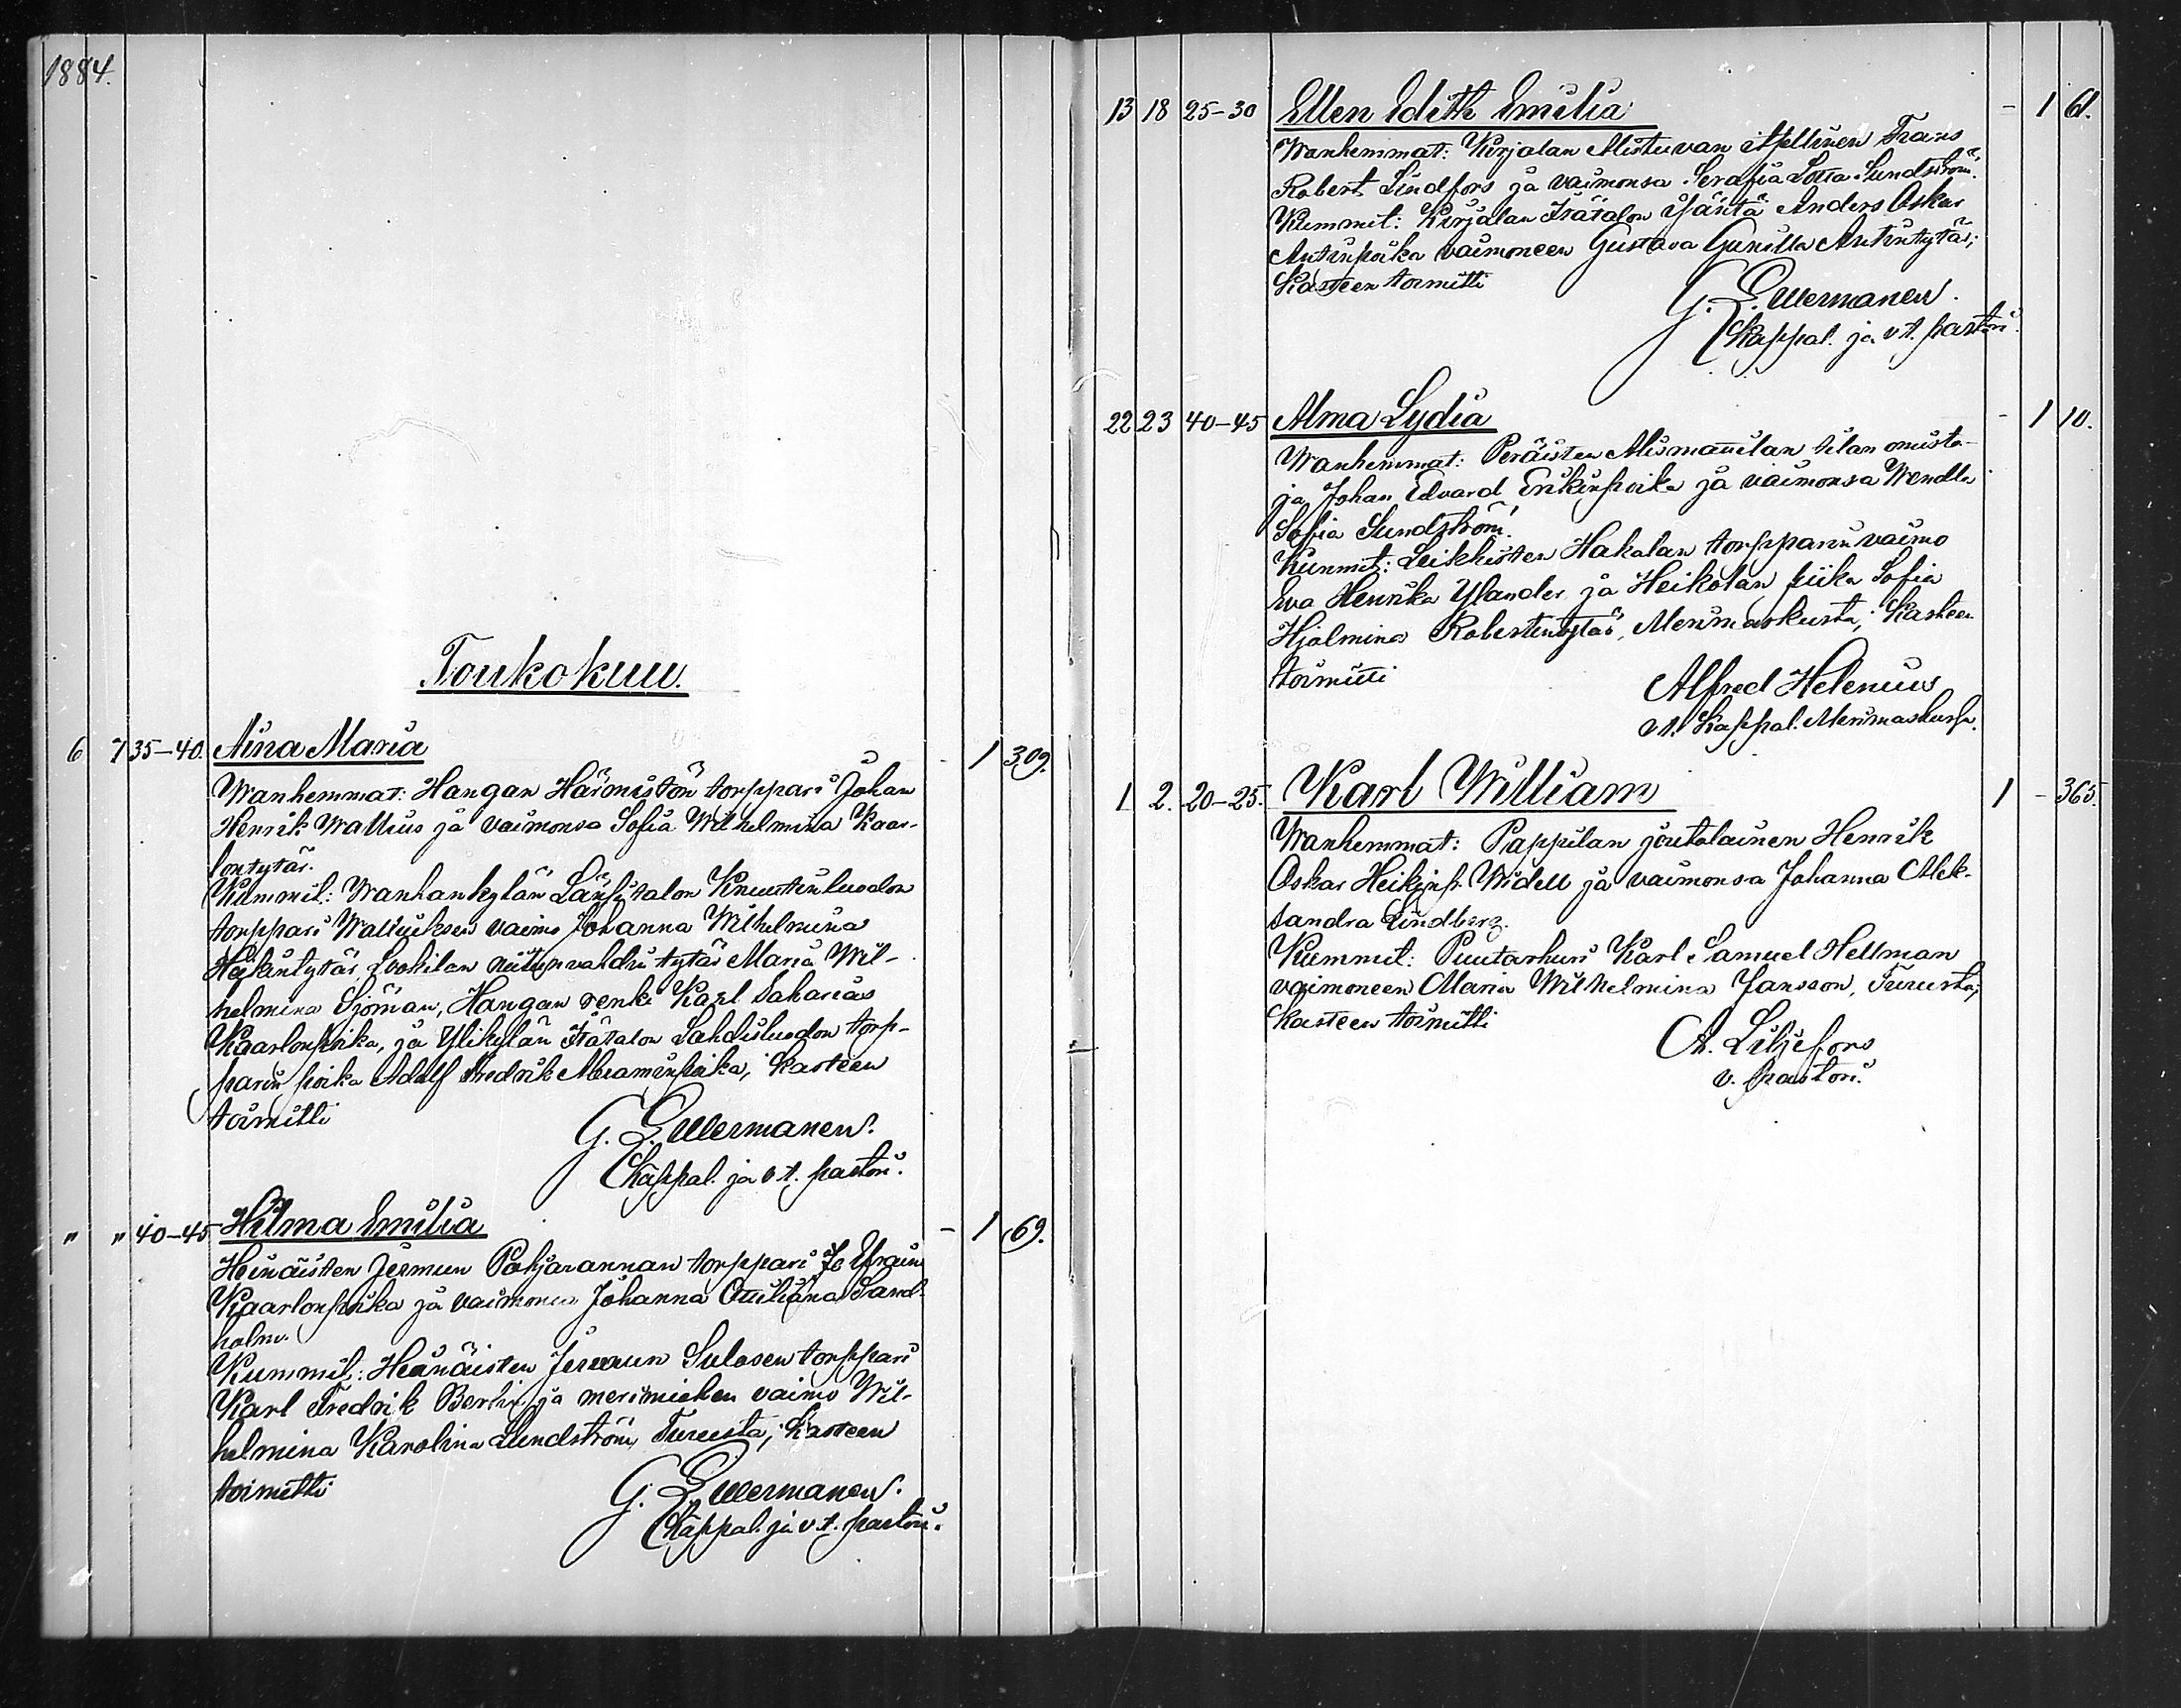 1884.
Toukokuu.
6 7 35-40. Aina Maria - 1 309.
Wanhemmat: Hangan Härmistön torppari Johan
Henrik Wallius ja vaimonsa Sofia Wilhelmina Kaar-
lontytär.
Kummit: Wanhankylän Länsitalon Knuutinluodon
torppari Walliuksen vaimo Johanna Wilhelmina
Heikintytär, tytär Maria Wil-
helmina Sjöman, Hangan renki Karl Sakarias
Kaarlonpoika, ja Ylikylän Itätalon Lahdisluodon torp-
parin poika Adolf Fredrik Abraminpoika; kasteen
toimitti
G. E. Wermanen.
Kappal. ja v.t. pastori.
" " 40-45 Hilma Emilia - 1 69.
Heinäisten Jermun Pohjarannan torppari Efraim
Kaarlonpoika ja vaimonsa Johanna Ottiliana Sand-
holm.
Kummit: Heinäisten Jermun Sulosen torppari
Karl Fredrik Berlin ja merimiehen vaimo Wil-
helmina Karolina Lundström, Turusta; kasteen
toimitti
G. E. Wermanen.
Kappal. ja v.t. pastori.
13 18 25-30 Ellen Edith Emilia - 1 61.
Wanhemmat: Kirjalan Alistuvan itsellinen Frans
Robert Lindfors ja vaimonsa Serafia Lovisa Sundström.
Kummit: Kirjalan Itätalon isäntä Anders Oskar
Antinpoika vaimoneen Gustava Gunilla Antintytär;
Kasteen toimitti
G. E. Wermanen.
Kappal. ja v.t. pastori.
22 23 40-45 Alma Lydia - 1 10.
Wanhemmat: Peräisten Alismattilan tilan omista-
ja Johan Edvard Erikinpoika ja vaimonsa Wendla
Sofia Sundström.
Kummit: Leikkisten Hakalan torpparin vaimo
Eva Henrika Ylander ja Heikolan piika Sofia
Hjalmina Robertintytär, Merimaskusta; kasteen
toimitti
Alfred Helenius
Kappal. Merimaskussa.
1 2. 20-25. Karl William 1 - 365.
Wanhemmat: Pappilan joutolainen Henrik
Oskar Heikinp. Widell ja vaimonsa Johanna Alek-
sandra Lindberg.
Kummit: Puutarhuri Karl Samuel Hellman
vaimoneen Maria Wilhelmina Jansson, Turusta;
kasteen toimitti
A. Liljefors
v. pastori.